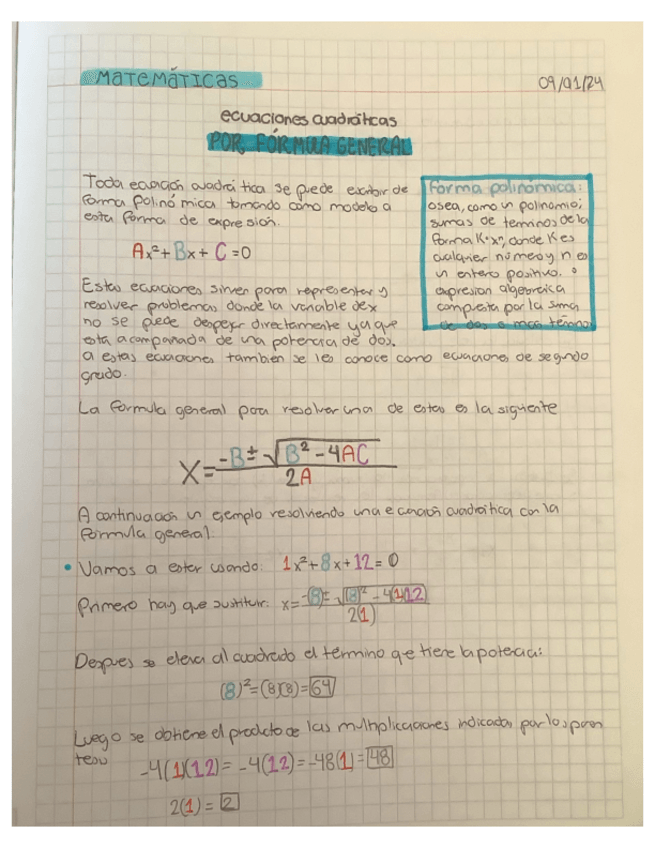 MATEMÁTICAS
09/01/24
ecuaciones cuadráticas
POR FÓRMULA GENERAL
Toda ecuación cuadrática se puede escribir de
forma polinómica tomando como modelo a
esta forma de expresión.
Ax²+Bx+C=0
Forma polinómica:
osea, como un polinomio;
sumas de terminos de la
forma K·xⁿ, donde K es
cualquier número y n es
un entero positivo. o
expresion algebraica
compuesta por la suma
de dos o mas términos
Estas ecuaciones sirven para representar y
resolver problemas donde la variable de x
no se puede despejar directamente ya que
está acompañada de una potencia de dos.
a estas ecuaciones tambien se les conoce como ecuaciones de segundo
grado.
La formula general para resolver una de estas es la siguiente
X=-B±√B²-4AC
2A
A continuación un ejemplo resolviendo una ecuación cuadrática con la
formula general.
• Vamos a estar usando: 1x²+8x+12=0
Primero hay que sustituir: x=-(8)±√(8)²-4(1)(12)
2(1)
Despues se eleva al cuadrado el término que tiene la potencia:
(8)²=(8)(8)=64
Luego se obtiene el producto de las multiplicaciones indicadas por los paren
tesis
-4(1)(12)=-4(12)=-48(1)=-48
2(1)=2